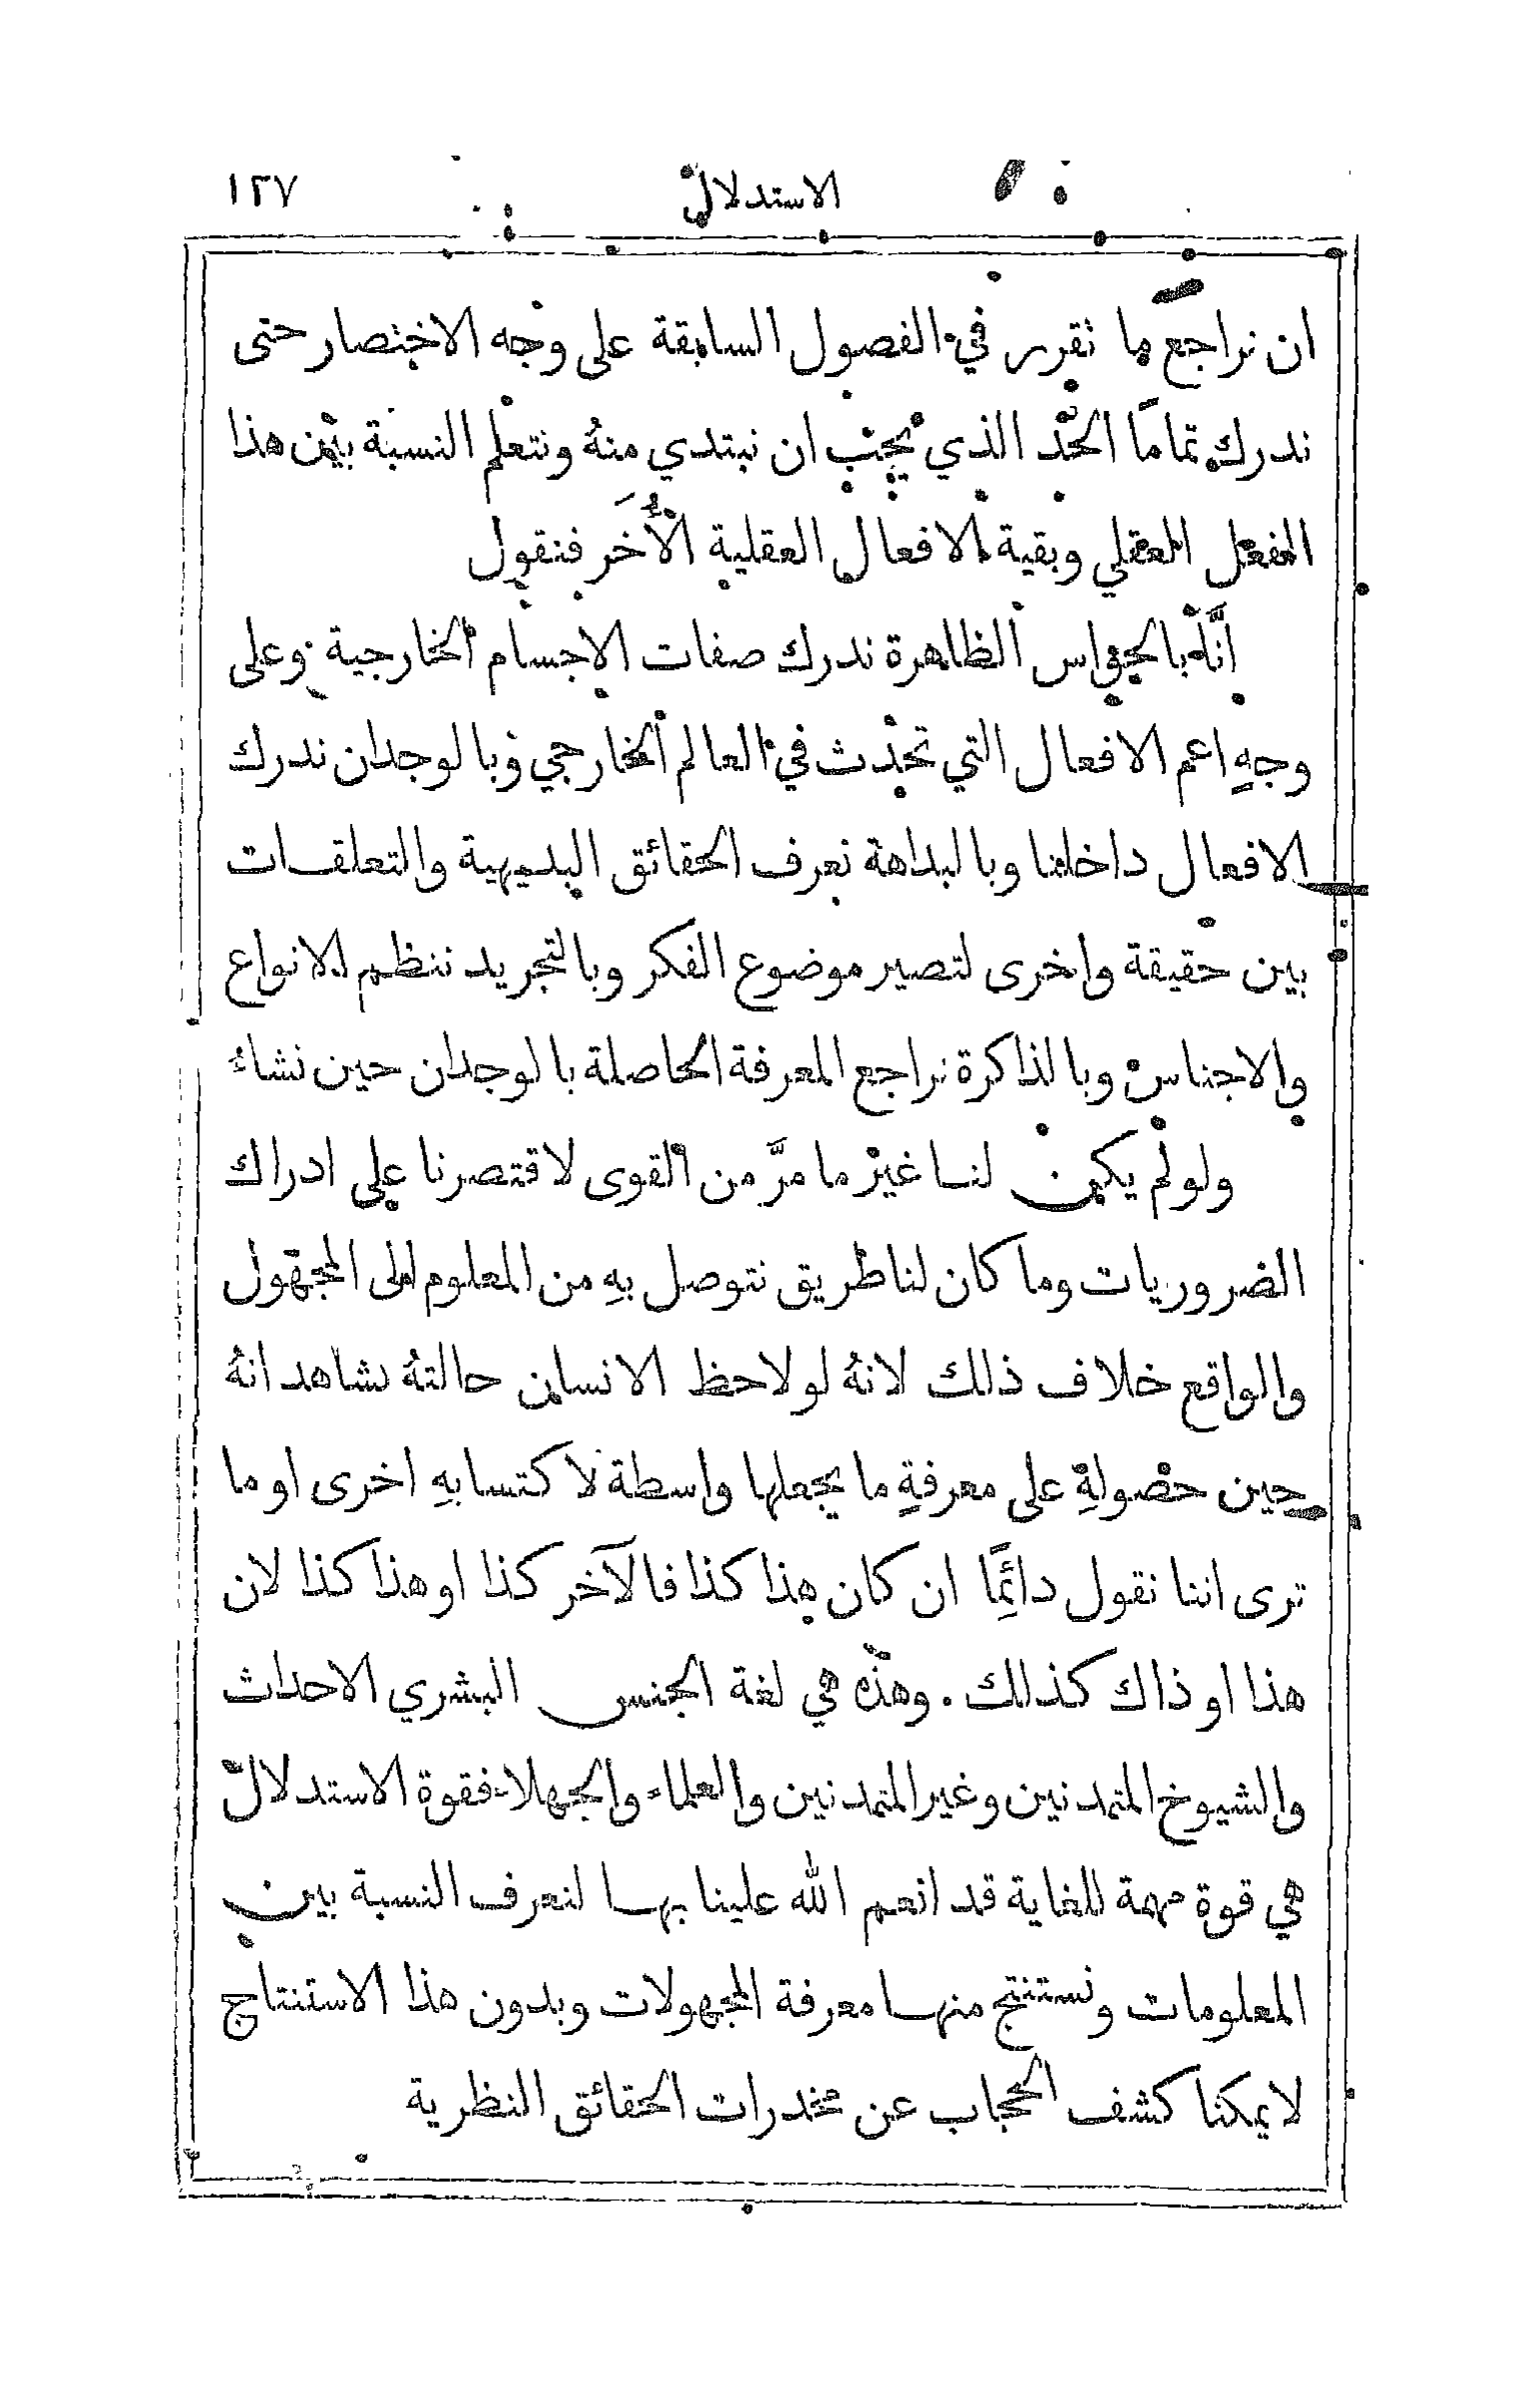 الاستدلال ١٢٧
ان نراجع ما تقرر في الفصول السابقة على وجه الاختصار حتى
ندرك تماما الحد الذي يجب ان نبتدي منهُ ونتعلم النسبة بين هذا
الفعل العقلي وبقية الافعال العقلية الأُخَر فنقول
انَّا بالحواس الظاهرة ندرك صفات الاجسام الخارجية وعلى
وجهِ اعم الافعال التي تحدث في العالم الخارجي وبالوجدان ندرك
الافعال داخلنا وبالبداهة نعرف الحقائق البديهية والتعلقات
بين حقيقة واخرى لتصير موضوع الفكر وبالتجريد ننظم الانواع
والاجناس وبالذاكرة نراجع المعرفة الحاصلة بالوجدان حين نشاءُ
ولو لم يكن لنا غير ما مرَّ من القوى لاقتصرنا على ادراك
الضروريات وما كان لنا طريق نتوصل بهِ من المعلوم الى المجهول
والواقع خلاف ذلك لانهُ لو لاحظ الانسان حالتهُ لشاهد انهُ
حين حصولهِ على معرفةِ ما يجعلها واسطة لاكتسابهِ اخرى او ما
ترى اننا نقول دائِمًا ان كان هذا كذا فالآخر كذا او هذا كذا لان
هذا او ذاك كذلك . وهذه هي لغة الجنس البشري الاحداث
والشيوخ المتمدنين وغير المتمدنين والعلماء والجهلاء فقوة الاستدلال
هي قوة مهمة للغاية قد انعم الله علينا بها لنعرف النسبة بين
المعلومات ونستنتج منها معرفة المجهولات وبدون هذا الاستنتاج
لا يمكنا كشف الحجاب عن مخدرات الحقائق النظرية